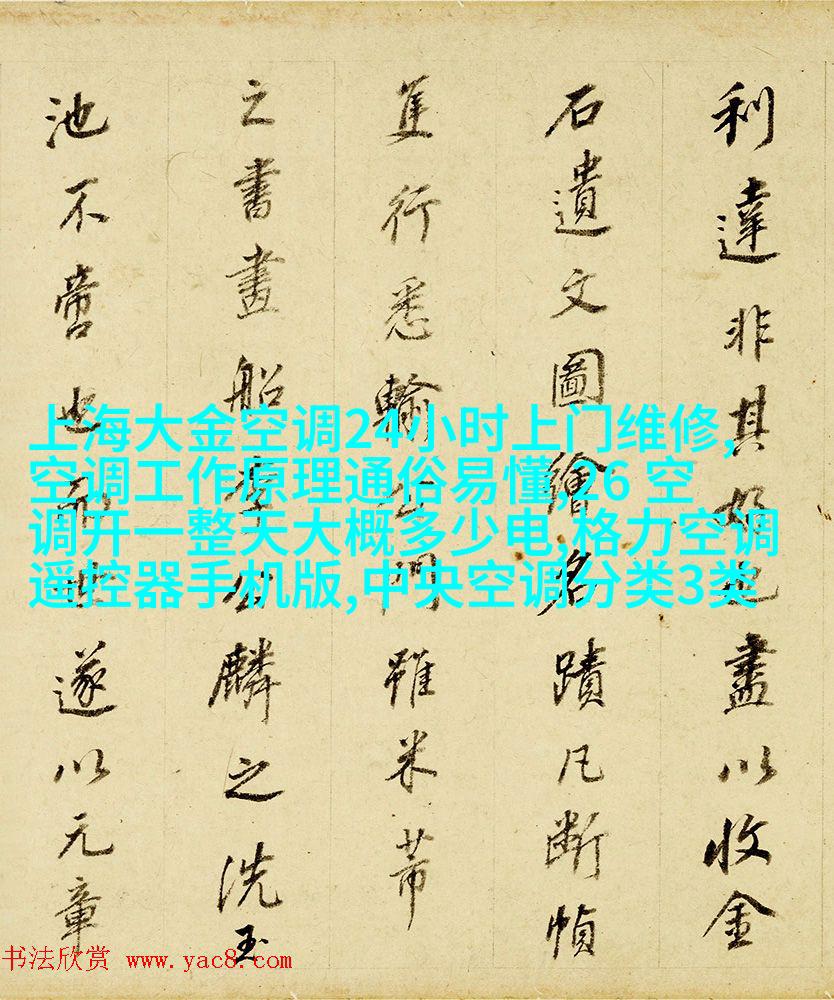 利達非其好也盡以收金
石遺文圖繪名蹟凡斷幀
隻行悉輸門雖米芾
之書畫船李公麟之洗玉
池不啻也而世遂以元章
上海大金空调24小时上门维修,
空调工作原理通俗易懂 26 空
调开一整天大概多少电,格力空调
遥控器手机版,中央空调分类3类
书法欣赏 www.yac8.com